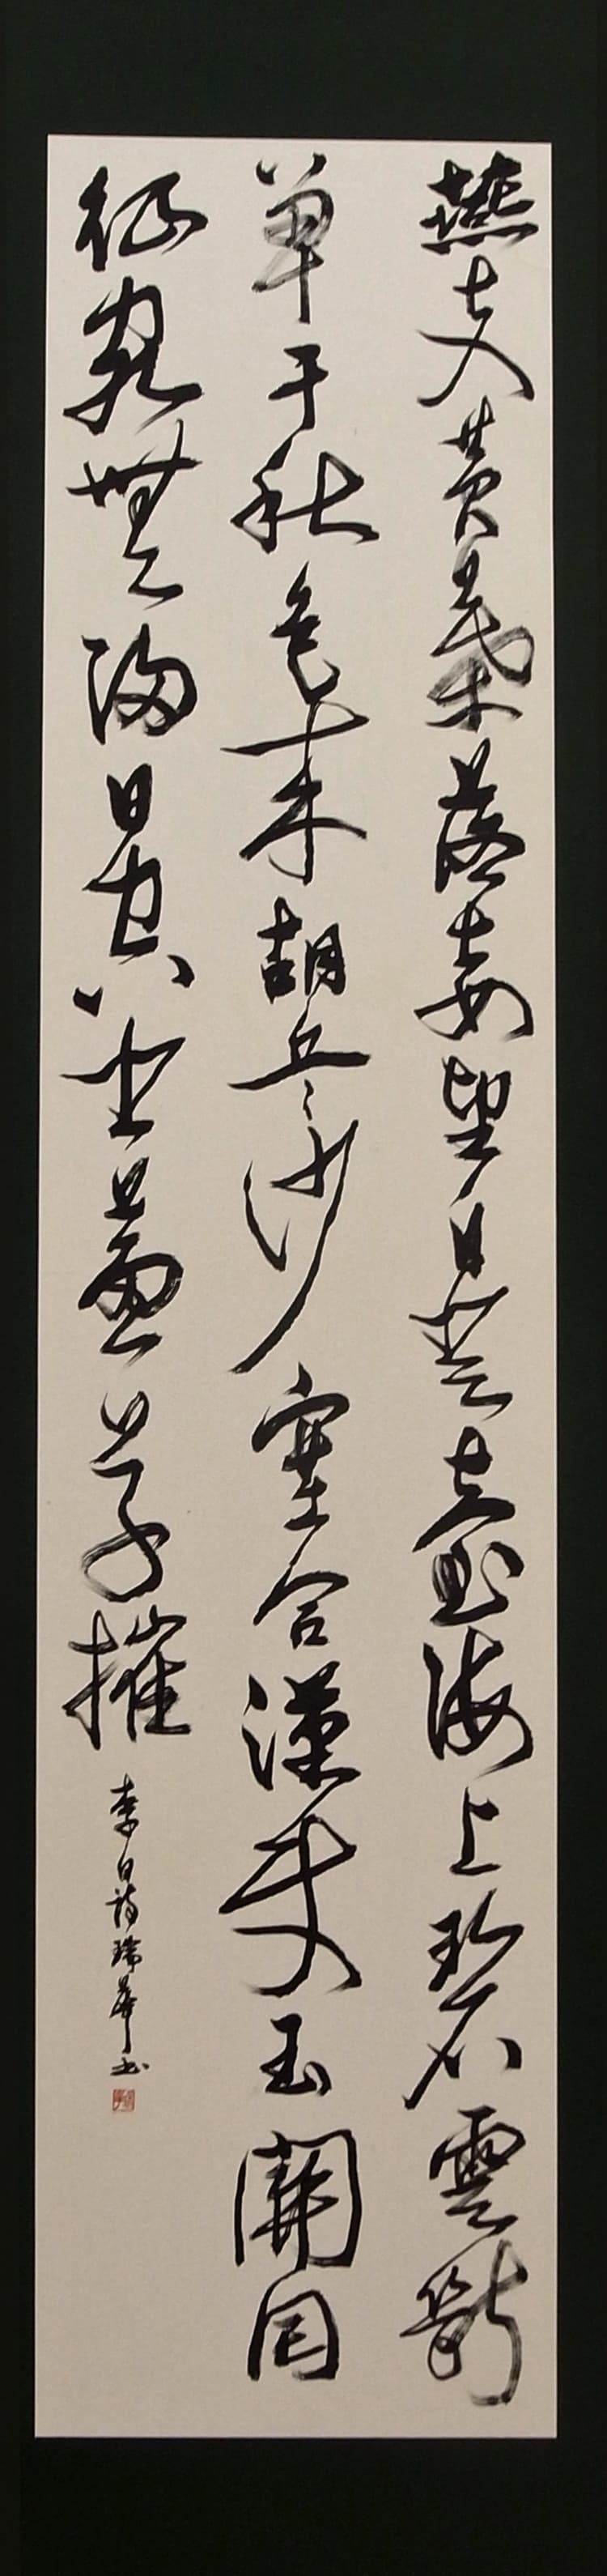 燕支黃葉落妾望自登臺海上碧雲斷
單于秋色來胡兵沙塞合漢使玉關回
征客無歸日空悲蕙草摧
李白詩瑞華書